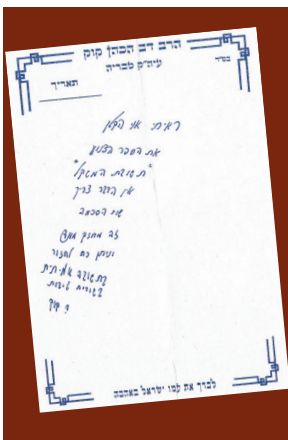 בס"ד
הרב דב הכהן קוק
עיה"ק טבריה
תאריך
ראיתי אני הקטן
את הספר הבצוע
"תשובת המשקל"
אין הדבר צריך
שום הסכמה
זה מחזק מאד
ונותן כח לחזור
בתשובה אמיתית
קוק
לברך את עמו ישראל באהבה